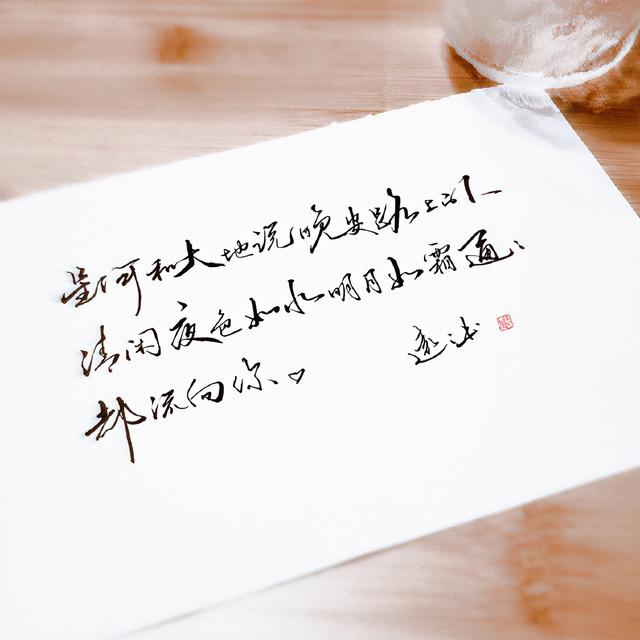 星河和大地说晚安路
清闲夜色如水明月如霜通
都流向你、♡